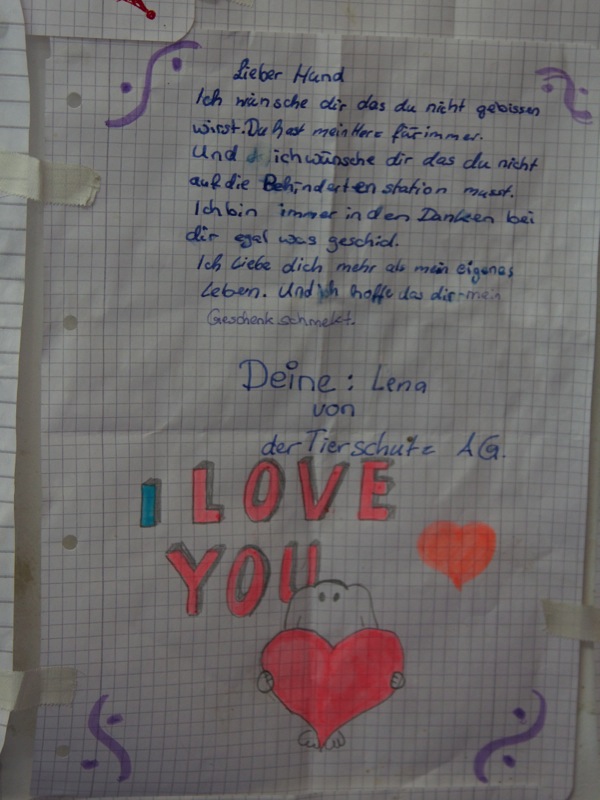 Lieber Hund
Ich wünsche dir das du nicht gebissen
wirst. Du hast mein Herz für immer.
Und ich wünsche dir das du nicht
auf die Behinderten station musst.
Ich bin immer in den Danken bei
dir egal was geschid.
Ich Liebe dich mehr als mein eigenes
Leben. Und ich hoffe das dir mein
Geschenk schmekt.
Deine: Lena
von
der Tierschutz AG.
I LOVE
YOU